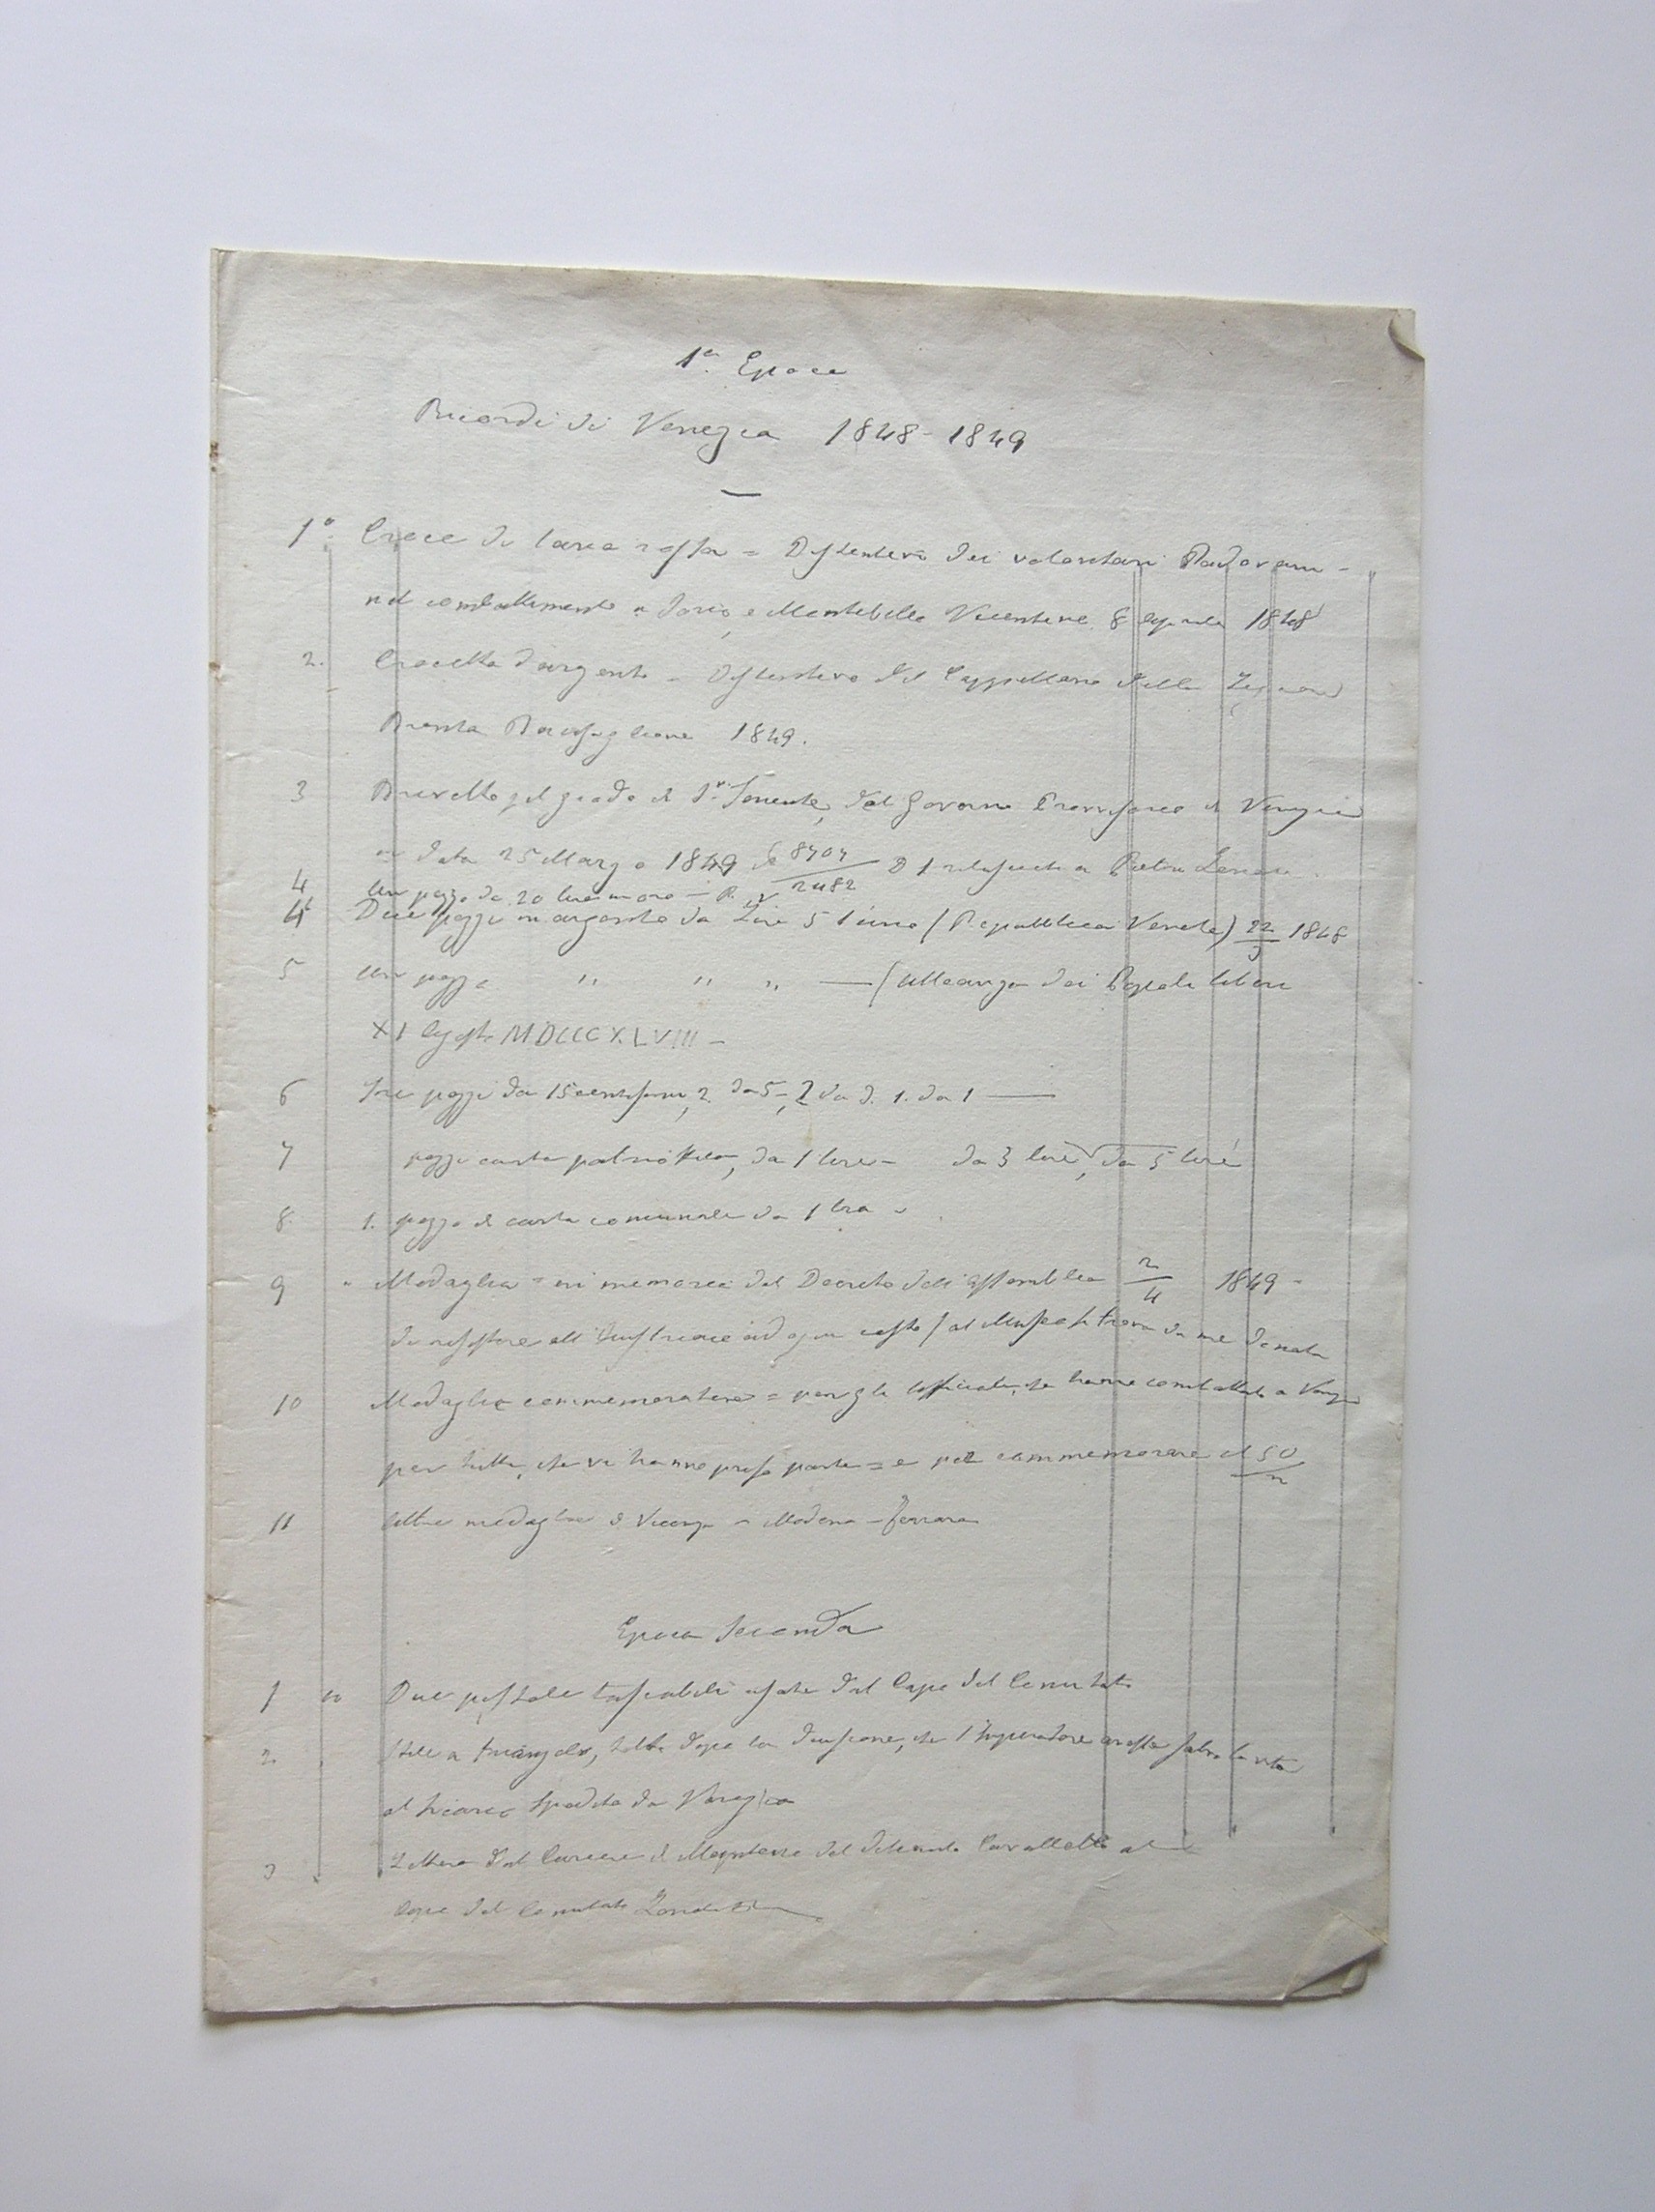 1ª Epoca
Ricordi di Venezia 1848-1849
1º Croce di lana rossa = Distintivo dei volontari Padovani -
nel combattimento a Sorio, e Montebello Vicentino 8 Aprile 1848
2. Crocetta d'argento - Distintivo del Cappellano della Legione
Brenta Bacchiglione 1849.
3 Brevetto pel grado di 1º Tenente, dal Governo Provvisorio di Venezia
in data 25 Marzo 1849 8707/2482 rilasciato a Pietro
4 Un pezzo da 20 lire in oro -
4 Due pezzi in argento da Lire 5 l'uno (Repubblica Veneta) 22/3 1848
5 Un pezzo " " " — (Alleanza dei Popoli liberi
XI Agosto MDCCCXLVIII -
6 Tre pezzi da 15 centesimi, 2. da 5-, 2 da 3. 1. da 1 —
7 pezzi carta patriottica, da 1 lire - da 3 lire, da 5 lire
8 1. pezzo di carta comunale da 1 lira
9 " Medaglia = in memoria del Decreto dell'Assemblea 2/4 1849 -
di resistere all'Austriaco ad ogni costo / al Museo si trova da me donata
10 Medaglie commemorative = per gli Ufficiali, che hanno combattuto a Venezia
per tutti, che vi hanno preso parte = e per commemorare il 50/n
11 Altre medaglie di Vicenza - Modena - Ferrara
Epoca Seconda
1 Due pistole tascabili usate dal Capo del Comitato
2. Stile a triangolo, tolto dopo la, che l'Imperatore avesse salva la vita
al sicario spedito da Venezia
3 Lettera dal Carcere di Mantova del detenuto Cavalletto al
Capo del Comitato